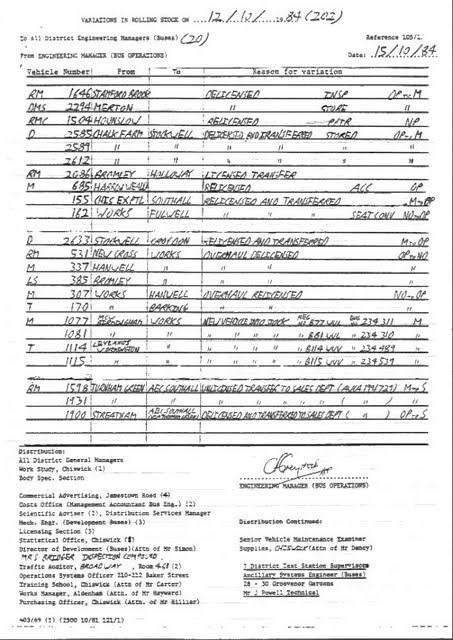 VARIATIONS IN ROLLING STOCK ON 12/10/84 (202)
To All District Engineering Managers (Buses) (20) Reference 105/2
From ENGINEERING MANAGER (BUS OPERATIONS) Date: 15/10/84
Vehicle Number From To Reason for variation
RM 1646 STAMFORD BROOK DELICENSED INSP OP to M
DMS 2294 MERTON " STORE "
RMC 1504 HOUNSLOW RELICENSED NP
D 2585 CHALK FARM STOCKWELL DELICENSED AND TRANSFERRED STORED OP to M
2589 " " " " "
2612 " " " " "
RM 2686 BROMLEY HOLLOWAY LICENSED TRANSFER
M 685 HARROW WEALD RELICENSED ACC OP
155 CHIS EXPTL SOUTHALL RELICENSED AND TRANSFERRED M to OP
162 WORKS FULWELL " " " SEAT CONV NO to OP
D 2633 STOCKWELL CROYDON RELICENSED AND TRANSFERRED M to OP
RM 531 NEW CROSS WORKS OVERHAUL DELICENSED OP to NO
M 337 HANWELL " " " "
LS 385 BROMLEY " " " "
M 307 WORKS HANWELL OVERHAUL RELICENSED NO to OP
T 170 " BARKING " " "
M 1077 MCW BIRMINGHAM WORKS NEW VEHICLE INTO STOCK REG NO B77 WUL ENG NO 234311 M
1081 " " " " " B81 WUL " 234310 "
T 1114 LEYLANDS WORKINGTON " " " " B114 WUV " 234489 "
1115 " " " " " B115 WUV " 234539 "
RM 1598 TURNHAM GREEN AEC SOUTHALL UNLICENSED TRANSFER TO SALES DEPT M to S
1931 " " " " " "
1900 STREATHAM AEC SOUTHALL DELICENSED AND TRANSFERRED TO SALES DEPT ( " ) OP to S
Distribution:
All District General Managers
Work Study, Chiswick (1)
Body Spec. Section
ENGINEERING MANAGER (BUS OPERATIONS)
Commercial Advertising, Jamestown Road (4)
Costs Office (Management Accountant Bus Eng.) (2)
Scientific Adviser (2), Distribution Services Manager
Mech. Engr. (Development Buses) (3) Distribution Continued:
Licensing Section (3)
Statistical Office, Chiswick (1) Senior Vehicle Maintenance Examiner
Director of Development (Buses)(Attn of Mr Simon) Supplies, CHISWICK (Attn of Mr Dancy)
MRS BRIDGER INSPECTION COMPOUND
Traffic Auditor, BROADWAY, Room 468 (2) 7 District Test Station Supervisors
Operations Systems Officer 210-212 Baker Street Ancillary Systems Engineer (Buses)
Training School, Chiswick (Attn of Mr Carter) 28 - 30 Grosvenor Gardens
Works Manager, Aldenham (Attn of Mr Hayward) Mr J Powell Technical
Purchasing Officer, Chiswick (Attn of Mr Hillier)
403/69 (2) (2500 10/81 121/1)